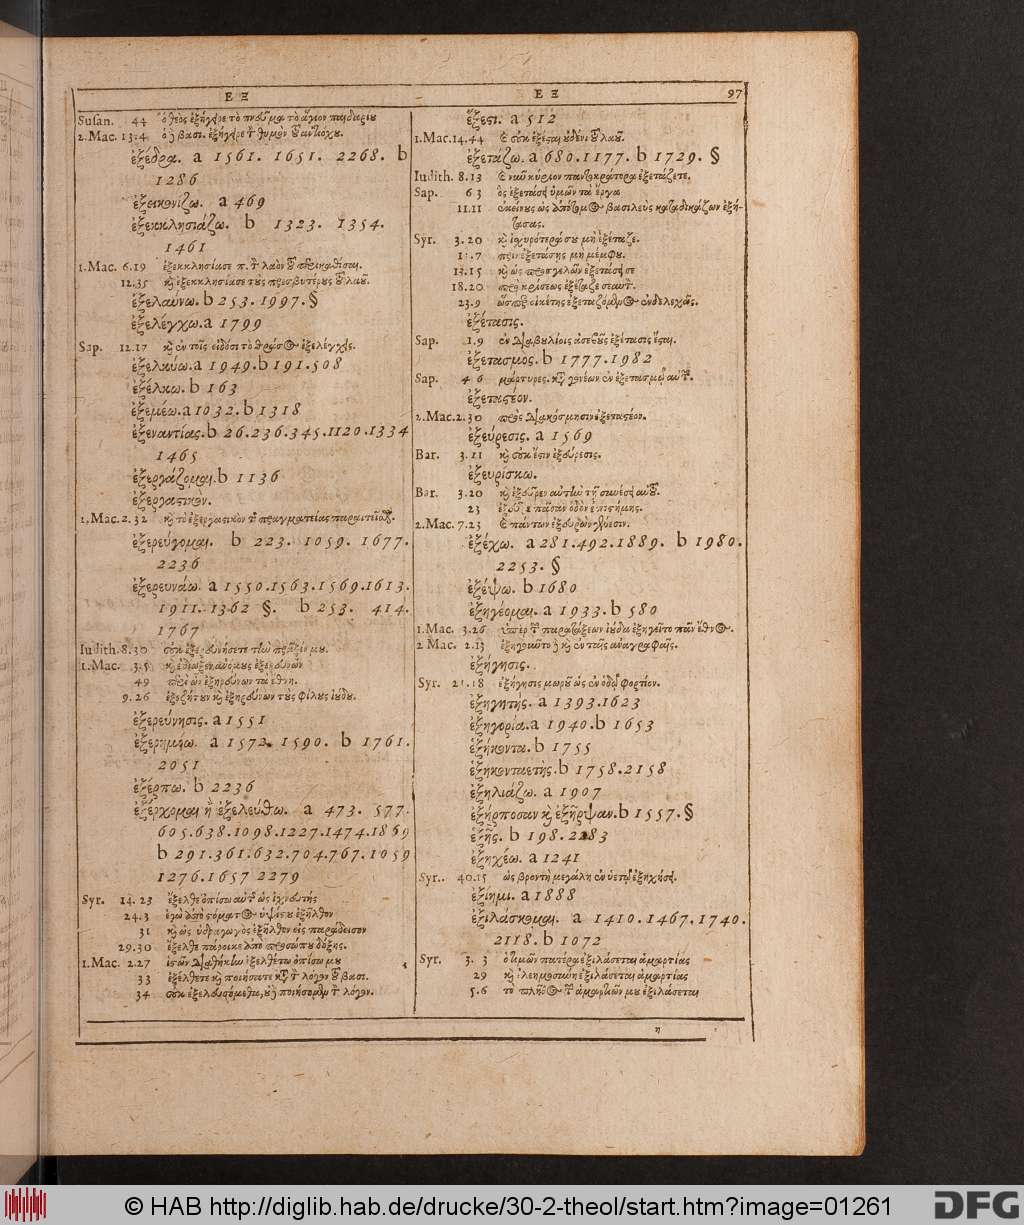 Ε Ξ
Susan. 44 ὁ θεὸς ἐξήγειρε τὸ πνεῦμα τὸ ἅγιον παιδαρίου
2. Mac. 13.4 βασι. ἐξήγειρε θυμὸν ἀντιόχου.
ἐξέδρα. a 1561. 1651. 2268. b
1286
ἐξεικονίζω. a 469
ἐξεκκλησιάζω. b 1323. 1354.
1461
1. Mac. 6.19 ἐξεκκλησίασε π. τ λαὸν
12.35 καὶ ἐξεκκλησίασε τοὺς πρεσβυτέρους λαοῦ.
ἐξελαύνω. b 253. 1997. §
ἐξελέγχω. a 1799
Sap. 12.17 καὶ ἐν τοῖς εἰδόσι τὸ θράσος ἐξελέγχεις.
ἐξελκύω. a 1949. b 191. 508
ἐξέλκω. b 163
ἐξεμέω. a 1032. b 1318
ἐξεναντίας. b 26. 236. 345. 1120. 1334
1465
ἐξεργάζομαι. b 1136
ἐξεργαστικὸν.
1. Mac. 2. 32 καὶ τὸ ἐξεργαστικὸν πραγματείας
ἐξερεύγομαι. b 223. 1059. 1677.
2236
ἐξερευνάω. a 1550. 1563. 1569. 1613.
1911. 1362 §. b 253. 414.
1767
Iudith. 8.30 οὐκ ἐξερευνήσετε
1. Mac. 3.5 καὶ ἐδίωξεν ἀνόμους ἐξερευνῶν
49 περὶ ὧν ἐξηρεύνων τὰ ἔθνη.
9. 26 ἐξεζήτουν καὶ ἐξηρεύνων τοὺς φίλους ἰούδου.
ἐξερεύνησις. a 1551
ἐξερημόω. a 1572. 1590. b 1761.
2051
ἐξέρπω. b 2236
ἐξέρχομαι ἢ ἐξελεύθω. a 473. 577.
605. 638. 1098. 1227. 1474. 1869
b 291. 361. 632. 704. 767. 1059
1276. 1657 2279
Syr. 14. 23 ἔξελθε ὀπίσω αὐτ ὡς ἰχνευτής
24.3 ἐγὼ ἀπὸ στόματος ὑψίστου ἐξῆλθον
31 καὶ ὡς ὑδραγωγὸς ἐξῆλθον εἰς παράδεισον
29.30 ἔξελθε πάροικε ἀπὸ προσώπου δόξης.
1. Mac. 2.27 ἐξελθέτω ὀπίσω μου
33 ἐξέλθετε καὶ ποιήσατε κτ τ λόγον βασι.
34 οὐκ ἐξελευσόμεθα, ποιήσομεν τ λόγον.
Ε Ξ 97
ἔξεστι. a 512
1. Mac. 14. 44 οὐκ ἐξέσται οὐδενὶ λαοῦ.
ἐξετάζω. a 680. 1177. b 1729. §
Iudith. 8.13 καὶ νῦν κύριον παντοκράτορα ἐξετάζετε.
Sap. 6 3 ὃς ἐξετάσει ὑμῶν τὰ ἔργα
11.11 ἐκείνους ὡς ἀπότομος βασιλεὺς καταδικάζων ἐξή-
τασας.
Syr. 3. 20 καὶ ἰσχυρότερά σου μὴ ἐξέταζε.
11.7 πρὶν ἐξετάσῃς μὴ μέμψῃ.
13.15 καὶ ὡς προσγελῶν ἐξετάσει σε
18.20 πρὸ κρίσεως ἐξέταζε σεαυτ.
23.9 ὥσπερ οἰκέτης ἐξεταζόμενος ἐνδελεχῶς.
ἐξέτασις.
Sap. 1.9 ἐν διαβουλίοις ἀσεβοῦς ἐξέτασις ἔσται.
ἐξετασμος. b 1777. 1982
Sap. 4 6 μάρτυρες. κτ γονέων ἐν ἐξετασμῷ αὐτ.
ἐξεταστέον.
2. Mac. 2. 30 πρὸς διακόσμησιν ἐξεταστέον.
ἐξεύρεσις. a 1569
Bar. 3. 11 καὶ οὐκ ἔστιν ἐξεύρεσις.
ἐξευρίσκω.
Bar. 3. 20 καὶ ἐξεῦρεν αὐτὴν τῇ συνέσει αὐτ.
23 ἐξεῦρε πᾶσαν ὁδὸν ἐπιστήμης.
2. Mac. 7. 23 πάντων ἐξευρὼν γένεσιν.
ἐξέχω. a 281. 492. 1889. b 1980.
2253. §
ἐξέψω. b 1680
ἐξηγέομαι. a 1933. b 580
1. Mac. 3. 26 ὑπὲρ παρατάξεων ἰούδα ἐξηγεῖτο πᾶν ἔθνος.
2 Mac. 2.13 ἐξηγοῦντο καὶ ἐν ταῖς ἀναγραφαῖς.
ἐξήγησις.
Syr. 21.18 ἐξήγησις μωροῦ ὡς ἐν ὁδῷ φορτίον.
ἐξηγητής. a 1393. 1623
ἐξηγορία. a 1940. b 1653
ἑξήκοντα. b 1755
ἑξηκονταετὴς. b 1758. 2158
ἐξηλιάζω. a 1907
ἐξήρποσαν καὶ ἐξῆρψαν. b 1557. §
ἑξῆς. b 198. 2283
ἐξηχέω. a 1241
Syr. 40.15 ὡς βροντὴ μεγάλη ἐν ὑετῷ ἐξηχήσει.
ἐξίημι. a 1888
ἐξιλάσκομαι. a 1410. 1467. 1740.
2118. b 1072
Syr. 3. 3 ὁ τιμῶν πατέρα ἐξιλάσεται ἁμαρτίας
29 καὶ ἐλεημοσύνη ἐξιλάσεται ἁμαρτίας
5.6 τὸ πλῆθος ἁμαρτιῶν μου ἐξιλάσεται
η
© HAB http://diglib.hab.de/drucke/30-2-theol/start.htm?image=01261
DFG